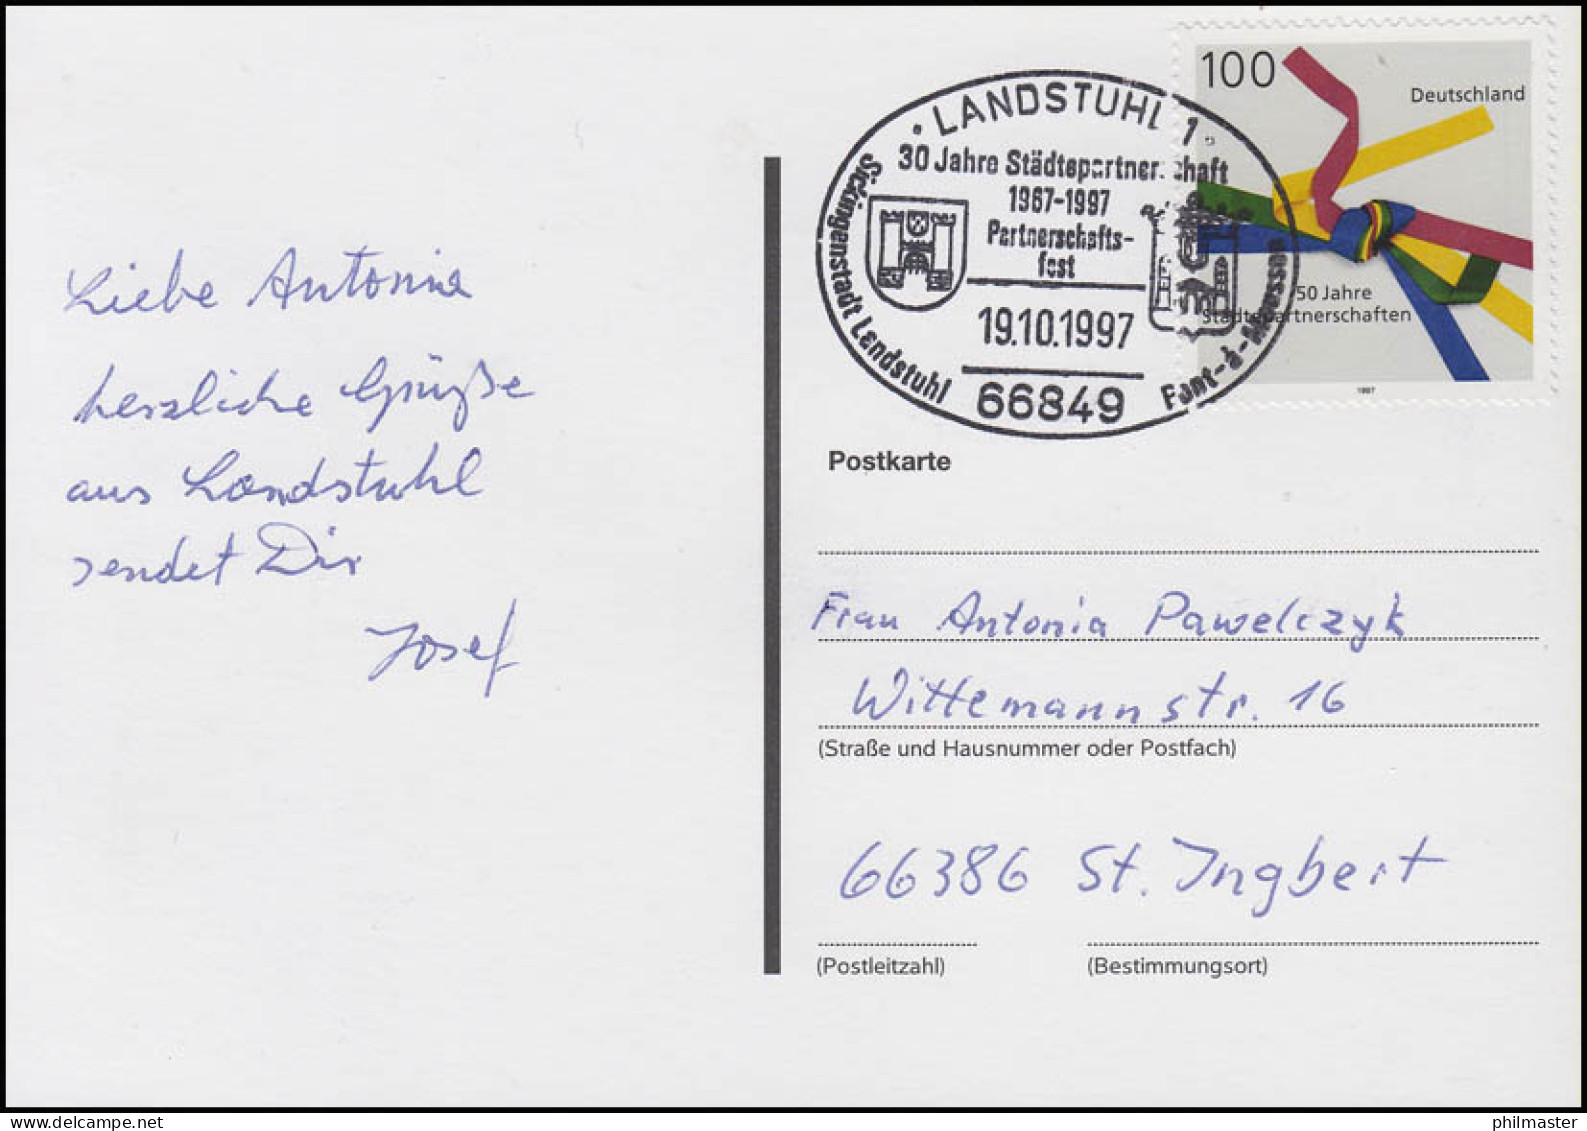 Liebe Antonia
herzliche Grüße
aus Landstuhl
sendet Dir
Josef
100
Deutschland
50 Jahre
Städtepartnerschaften
1997
• LANDSTUHL 1 •
30 Jahre Städtepartnerschaft
1967-1997
Partnerschafts-
fest
19.10.1997
66849
Sickingenstadt Landstuhl
Pont-à-Mousson
Postkarte
Frau Antonia Pawelczyk
Wittemannstr. 16
(Straße und Hausnummer oder Postfach)
66386 St. Ingbert
(Postleitzahl) (Bestimmungsort)
philmaster